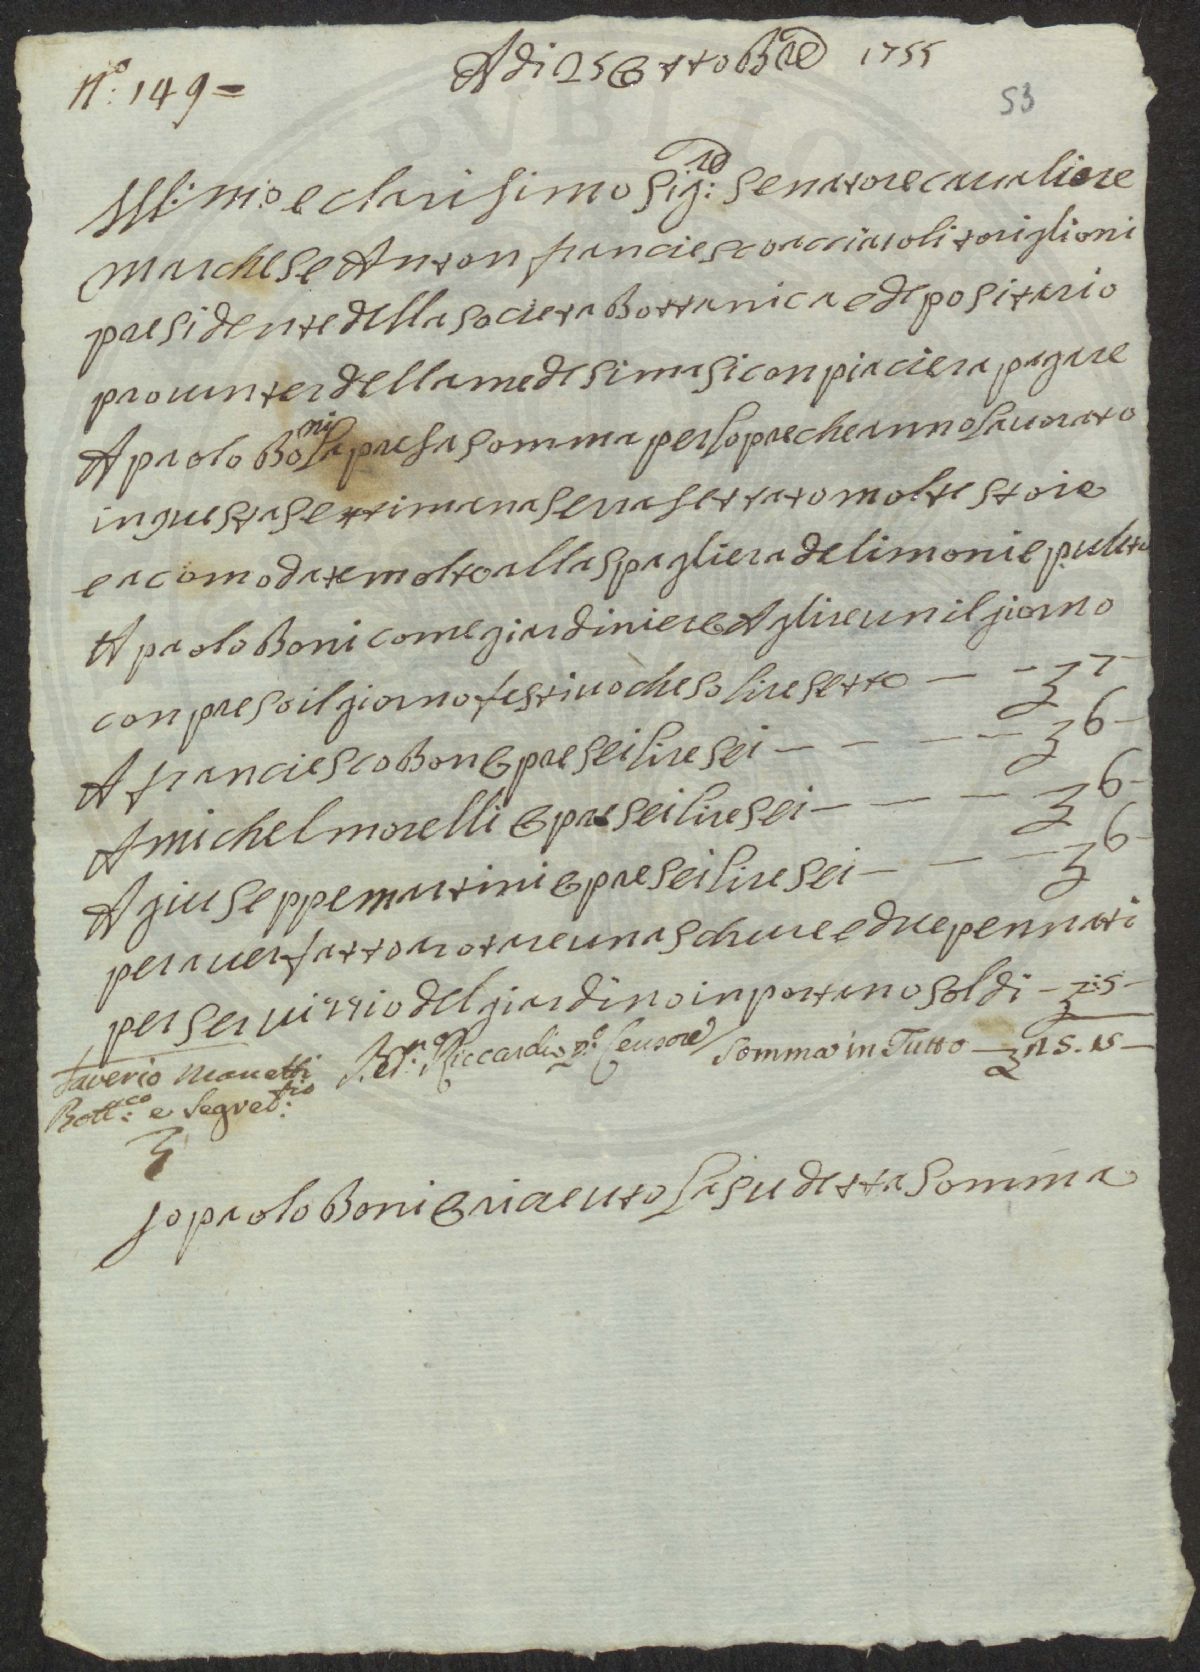 N.º: 149 =
A di 25 Ottobre 1755
53
Ill:mo e clarisimo Sig:re senatore cavaliere
marchese Anton franciesco acciaioli toriglioni
presidente della societa Bottanica e depositario
pro vinter della medesima si conpiaciera pagare
A paolo Boni la presa somma per lopre che anno lavorato
in questa settimana se rasettato molte stoie
e acomodate molto alla spagliera de limoni e pulite
A paolo Boni come giardiniere A glire un il giorno
conpreso il giorno festivo che so lire sette — — 7 —
A franciesco Bon Opre sei lire sei — — — — 6 —
A michel morelli Opre sei lire sei — — — 6 —
A giuseppe martini Opre sei lire sei — — — 6 —
per aver fatto arotare una schure e due pennati
per servizio del giardino inportano soldi — :5 —
Saverio Manetti
Bott:co e Segret:rio
Riccardi Censore
Somma in Tutto — 25.15 —
Io paolo Boni O riceuto la su detta somma